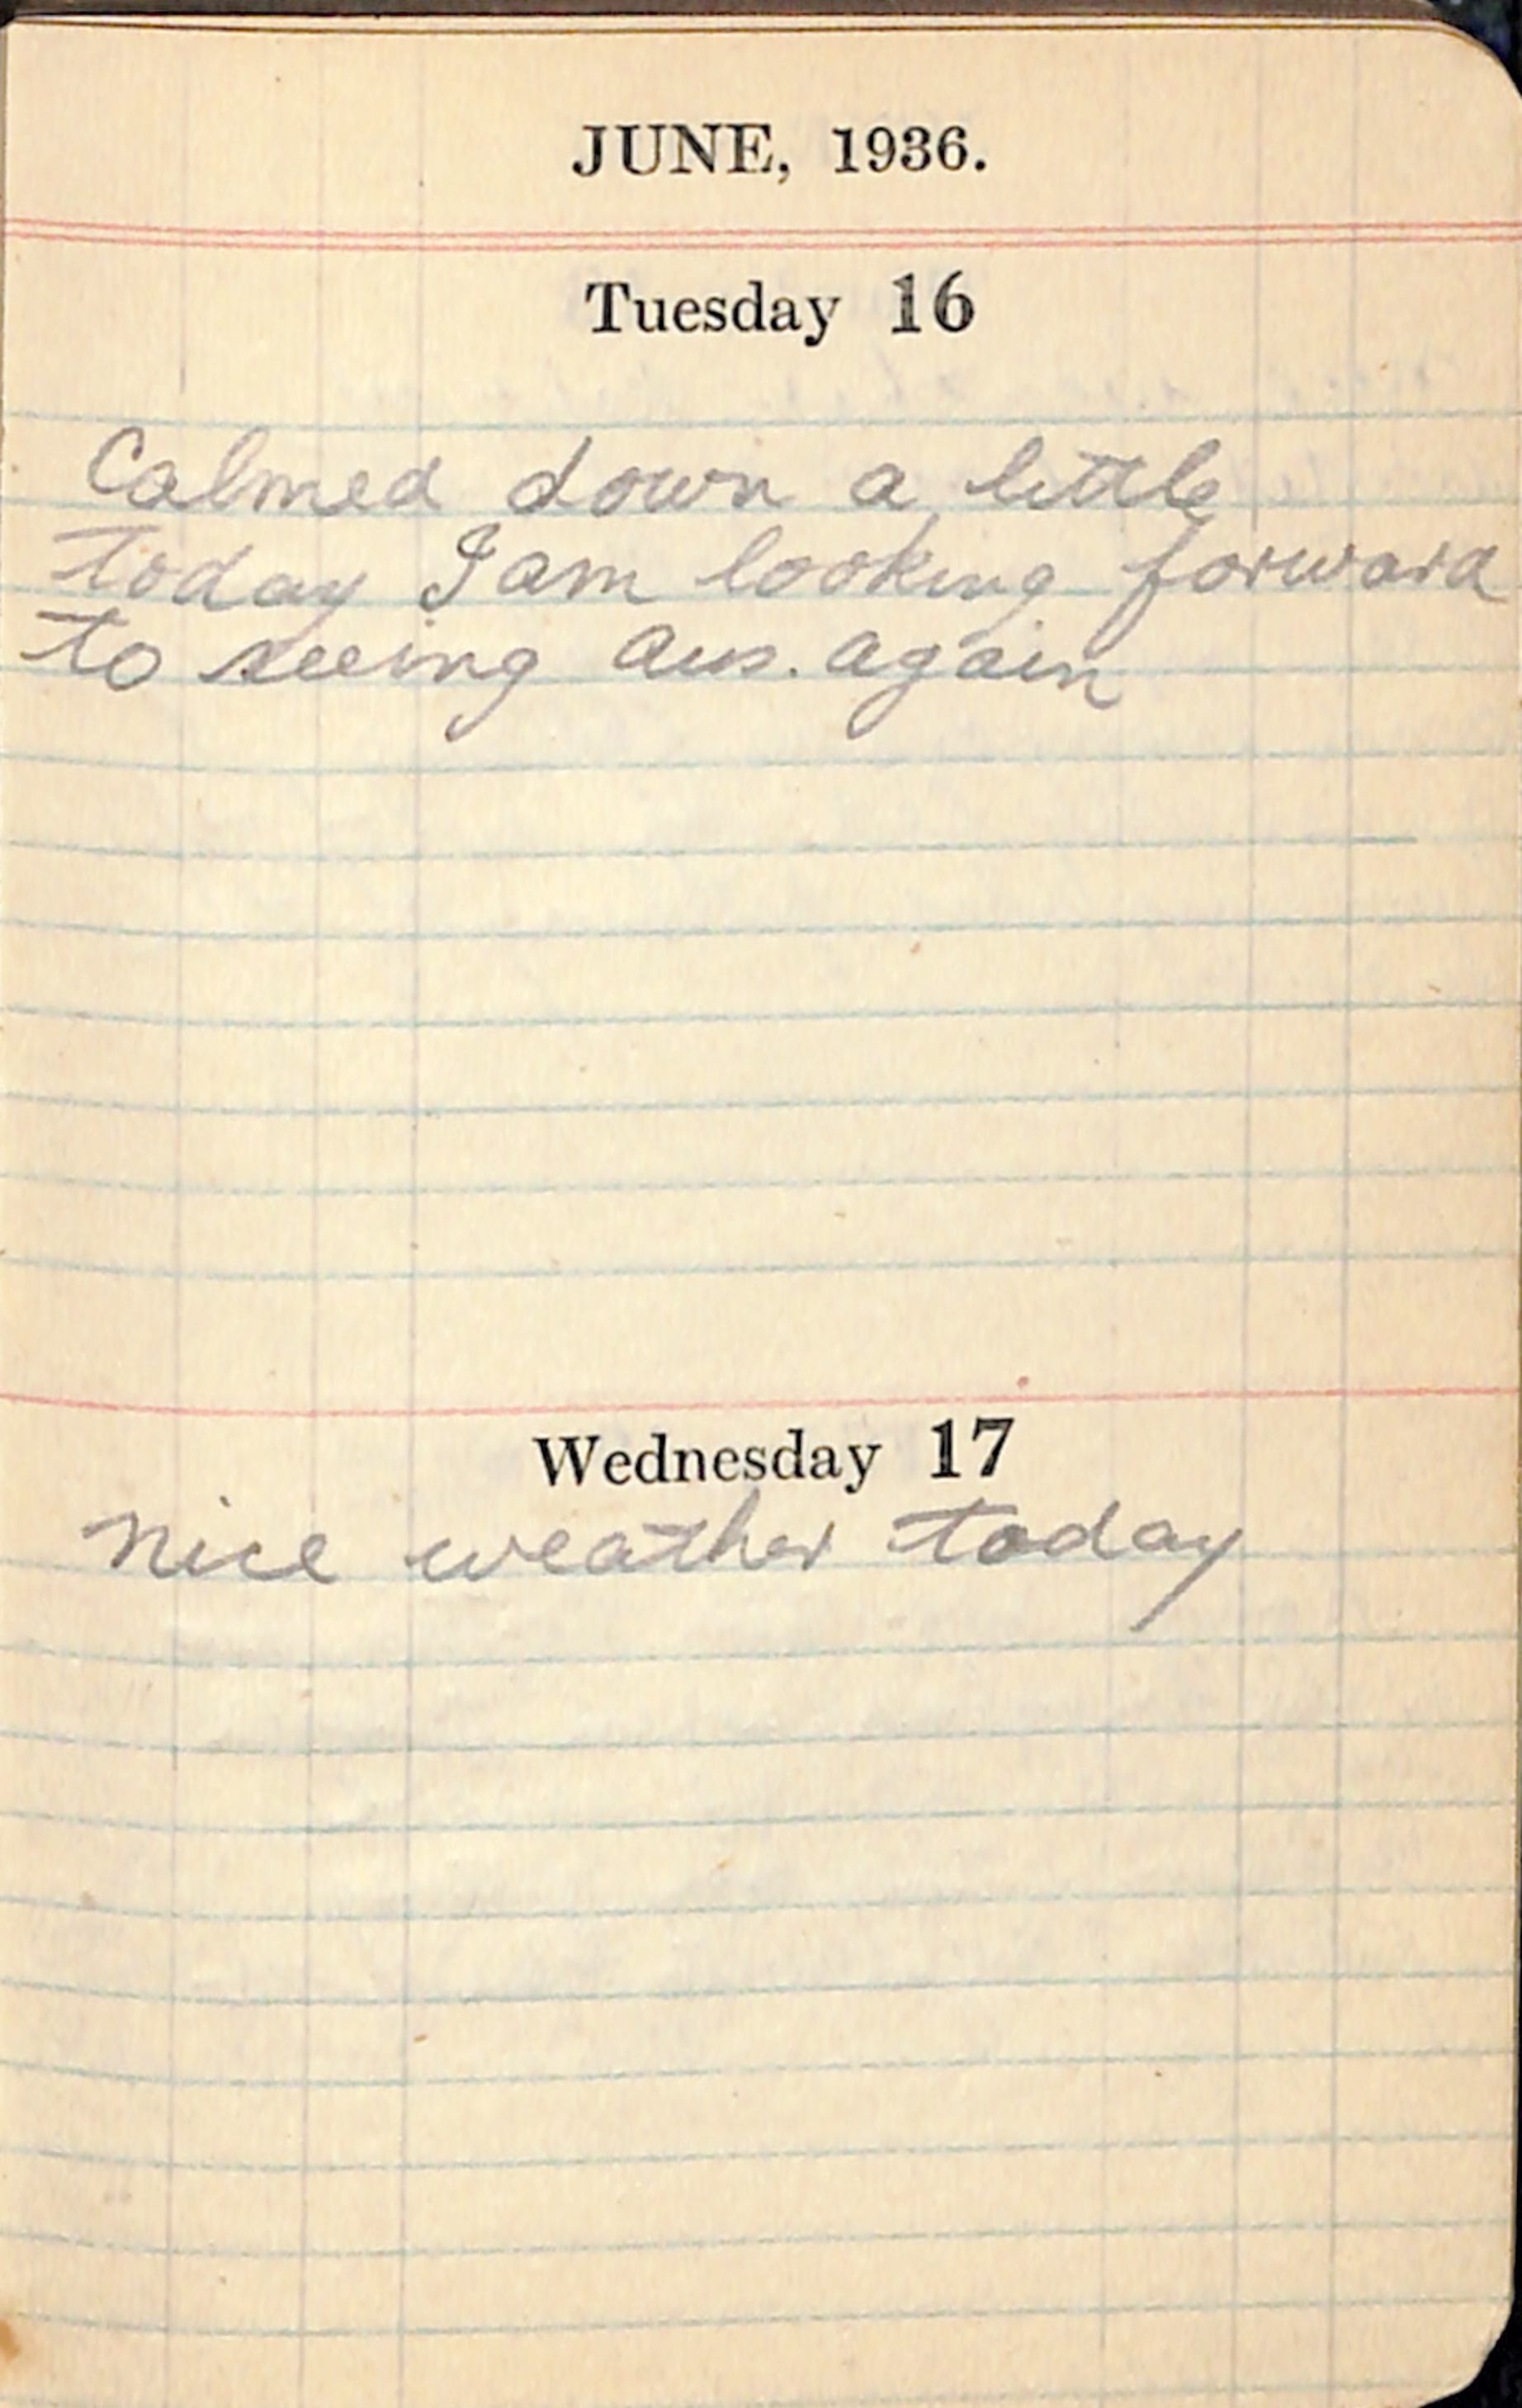 JUNE, 1936.
Tuesday 16
Calmed down a little
today I am looking forward
to seeing Aus. again
Wednesday 17
nice weather today